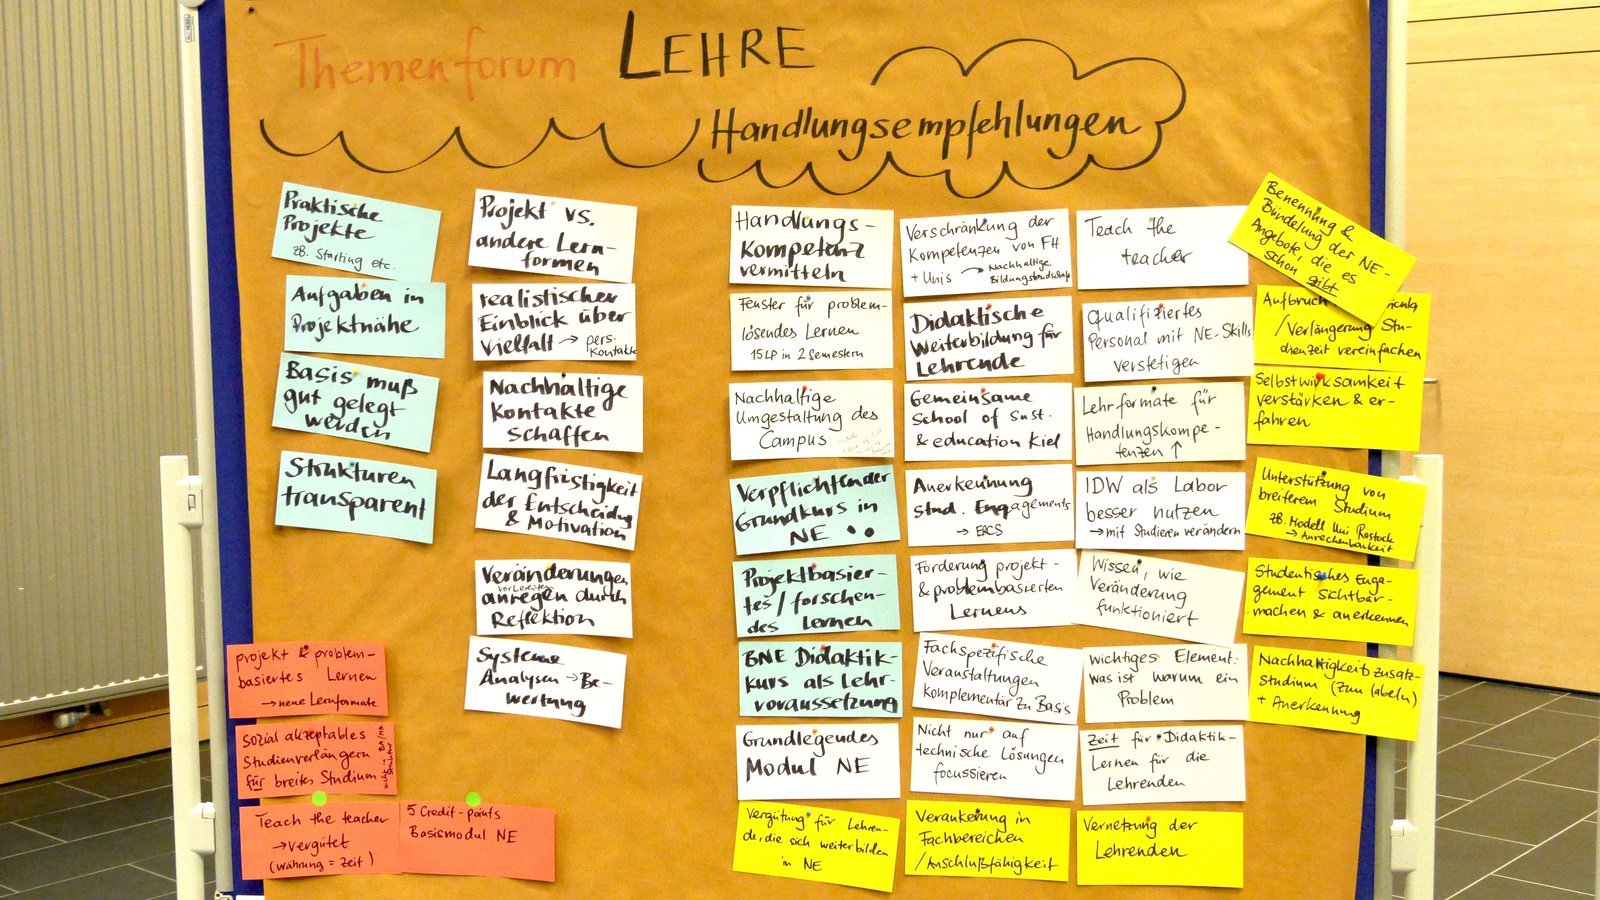 Themenforum LEHRE
Handlungsempfehlungen
Praktische
Projekte
zB. Starting etc.
Aufgaben in
Projektnähe
Basis muß
gut gelegt
werden
Strukturen
transparent
projekt & problem-
basiertes Lernen
→ neue Lernformate
sozial akzeptables
Studienverlängern
für breites Studium
Teach the teacher
→ vergütet
(Währung = Zeit)
5 Credit-points
Basismodul NE
Projekt vs.
andere Lern-
formen
realistischer
Einblick über
Vielfalt → pers.
Kontakte
Nachhaltige
Kontakte
schaffen
Langfristigkeit
der Entscheidung
& Motivation
Veränderungen
vorbereiten
anregen durch
Reflektion
Systeme
Analysen → Be-
wertung
Handlungs-
kompetenz
vermitteln
Fenster für problem-
lösendes Lernen
15 LP in 2 Semestern
Nachhaltige
Umgestaltung des
Campus
Verpflichtender
Grundkurs in
NE
Projektbasier-
tes/forschen-
des Lernen
BNE Didaktik-
kurs als Lehr-
voraussetzung
Grundlegendes
Modul NE
Vergütung für Lehren-
de, die sich weiterbilden
in NE
Verschränkung der
Kompetenzen von FH
+ Unis → Nachhaltige
Bildungslandschaft
Didaktische
Weiterbildung für
Lehrende
Gemeinsame
School of Sust.
& education Kiel
Anerkennung
Stud. Engagements
→ ECTS
Förderung projekt-
& problembasierten
Lernens
Fachspezifische
Veranstaltungen
komplementär zu Basis
Nicht nur auf
technische Lösungen
focussieren
Verankerung in
Fachbereichen
/Anschlußfähigkeit
Teach the
teacher
Qualifiziertes
Personal mit NE-Skills
verstetigen
Lehrformate für
Handlungskompe-
tenzen ↑
IDW als Labor
besser nutzen
→ mit Studieren verändern
Wissen, wie
Veränderung
funktioniert
wichtiges Element:
was ist warum ein
Problem
Zeit für Didaktik-
Lernen für die
Lehrenden
Vernetzung der
Lehrenden
Benennung &
Bündelung der NE-
Angebote, die es
schon gibt
Aufbruch
/Verlängerung Stu-
dienzeit vereinfachen
Selbstwirksamkeit
verstärken & er-
fahren
Unterstützung von
breiterem Studium
zB. Modell Uni Rostock
→ Anrechenbarkeit
Studentisches Enga-
gement sichtbar-
machen & anerkennen
Nachhaltigkeitszusatz-
Studium (zum labeln)
+ Anerkennung